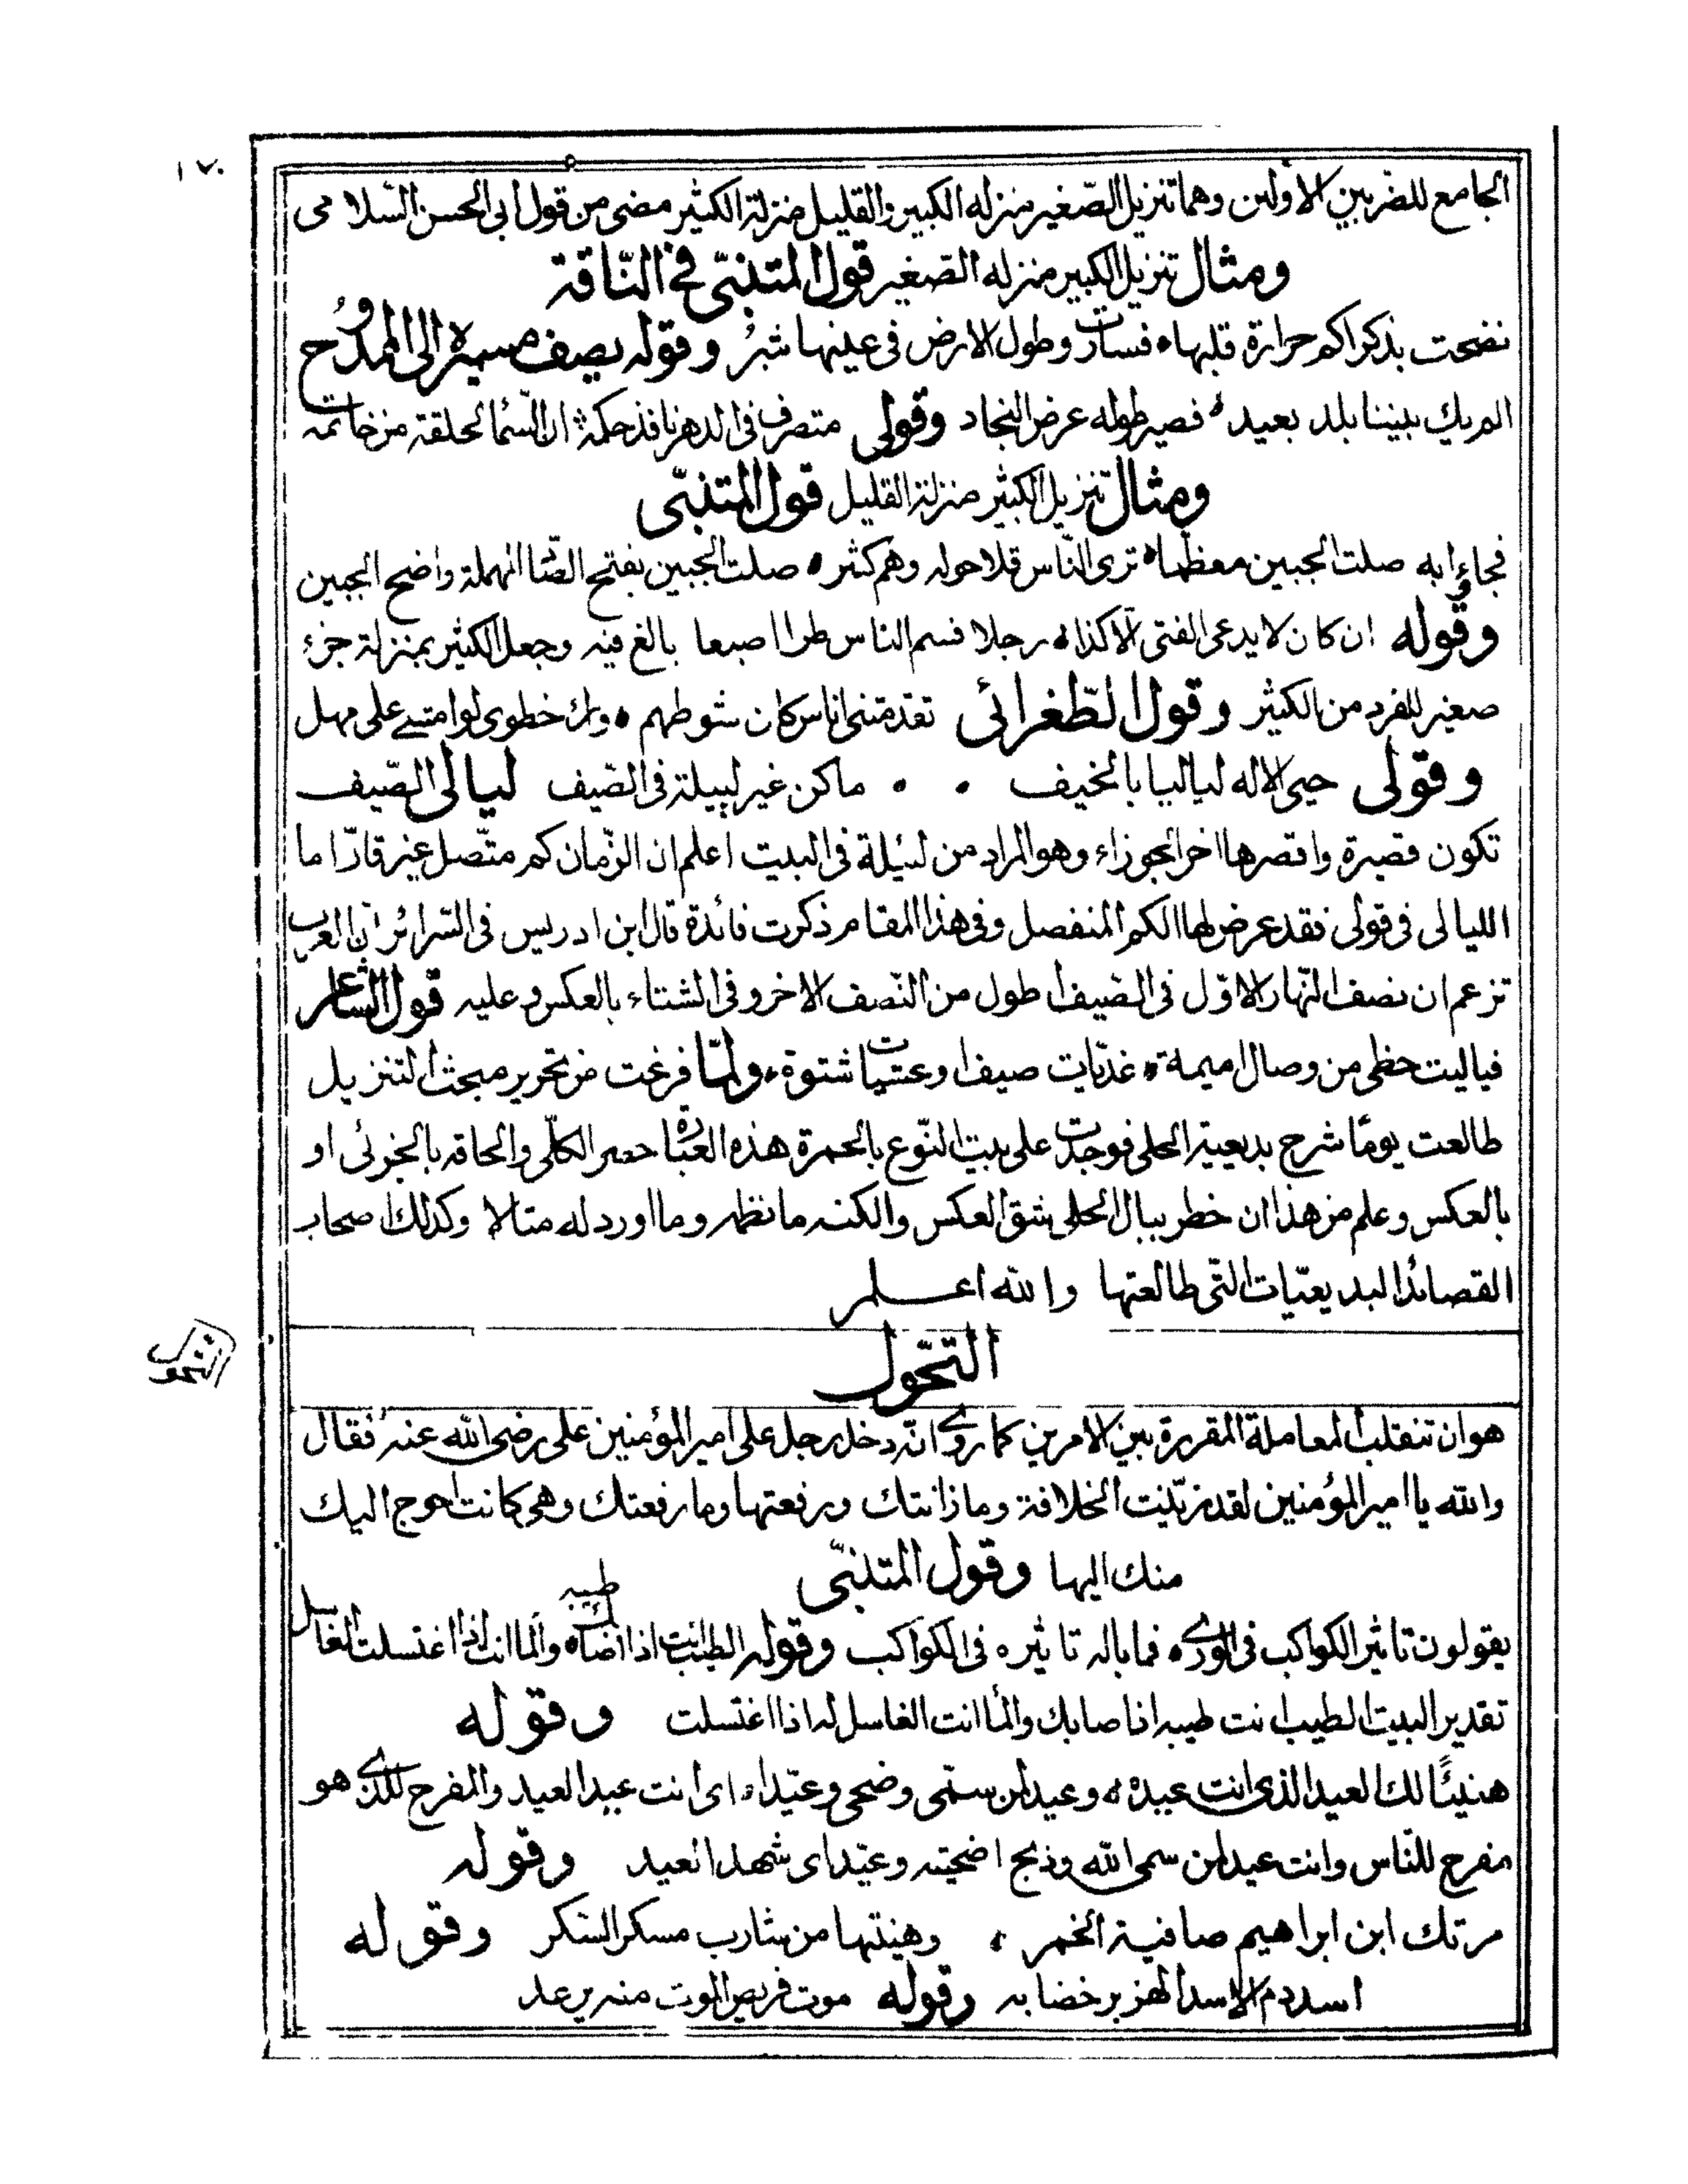 ١٧٠
الجامع للضربين الاولين وهما تنزيل الصّغير منزله الكبير والقليل منزلة الكثير مضى من قول ابى الحسن السّلامى
ومثال تنزيل الكبير منزله الصّغير قول المتنبّى فى النّاقة
نضحت بذكراكم حرارة قلبها، فسارت وطول الارض فى عينها شبرٌ وقوله يصف مسيره الى الممدوح
الم يك بيننا بلد بعيدٌ، فصير طوله عرض النجاد وقولى متصرف فى الدهر نافذ حكمه ان السّما لحلقة من خاتمه
ومثال تنزيل الكثير منزلة القليل قول المتنبّى
فجاؤا به صلت الجبين معظّما، ترى النّاس قلا حوله وهم كثر، صلت الجبين بفتح الصّاد المهملة واضح الجبين
وقوله ان كان لا يدعى الفتى الّا كذا، رجلا فسم الناس طرا اصبعا بالغ فيه وجعل الكثير بمنزلة جزء
صغير للفرد من الكثير وقول الطّغرائى تقدمتنى اناس كان شوطهم، وراء خطوى لو امشى على مهل
وقولى حيى الاله لياليا بالخيف ، ، ماكن غير لييلة فى الصّيف ليالى الصّيف
تكون قصيرة واقصرها اخر الجوزاء وهو المراد من لييلة فى البيت اعلم ان الزّمان كم متّصل غير قارّ اما
الليالى فى قولى فقد عرض لها الكم المنفصل وفى هذا المقام ذكرت فائدة قال ابن ادريس فى السّرائر ان العرب
تزعم ان نصف النّهار الاوّل فى الصّيف اطول من النّصف الاخر وفى الشتاء بالعكس وعليه قول الشاعر
فياليت حظى من وصال اميمة، غديّات صيف او عشيّات شتوة، ولمّا فرغت من تحرير مبحث التنزيل
طالعت يومًا شرح بديعية الحلى فوجدت على بيت النّوع بالحمرة هذه العبارة حصر الكلّى والحاقه بالجزئى او
بالعكس وعلم من هذا ان خطر ببال الحلى شق العكس والكنه ما نظمه وما اورد له مثالا وكذلك اصحاب
القصائد البديعيّات التّى طالعتها والله اعلم
التحوّل
التحوّل
هو ان تنقلب المعاملة المقررة بين الامرين كما روى انّه دخل رجل على امير المؤمنين على رضى الله عنه فقال
والله يا امير المؤمنين لقد زيّنت الخلافة وما زانتك ورفعتها وما رفعتك وهى كانت احوج اليك
منك اليها وقول المتنبّى
يقولون تاثير الكواكب فى الورى، فما باله تاثيره فى الكواكب وقوله الطيب انت اذا اصابك طيبه، والما انت اذا اغتسلت الغاسل
تقدير البيت الطيب انت طيبه اذا صابك والما انت الغاسل له اذا اغتسلت وقوله
هنيئًا لك العيد الذى انت عيده، وعيد لمن سمّى وضحى وعيّدا، اى انت عيد العيد والمفرح للذى هو
مفرح للنّاس وانت عيد لمن سمى الله وذبح اضحيته وعيّد اى شهد العيد وقوله
مرتك ابن ابراهيم صافية الخمر ، وهنيتها من شارب مسكر السّكر وقوله
اسد دم الاسد الهزبر خضابه وقوله موت فريص الموت منه يرعد